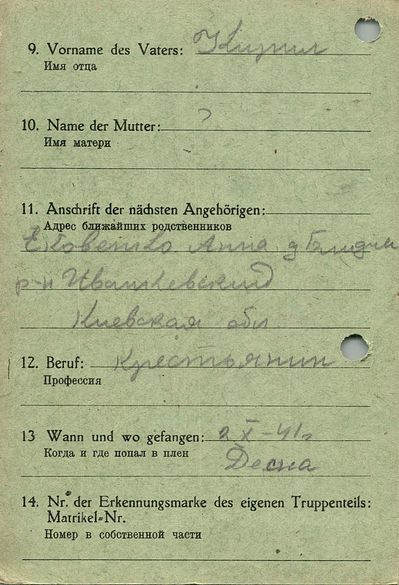 9. Vorname des Vaters: Кирил
Имя отца
10. Name der Mutter: ?
Имя матери
11. Anschrift der nächsten Angehörigen:
Адрес ближайших родственников
Анна д
р-н Иванкевский
Киевская обл
12. Beruf: Крестьянин
Профессия
13 Wann und wo gefangen: 2 X-41г
Когда и где попал в плен
Десна
14. Nr. der Erkennungsmarke des eigenen Truppenteils:
Matrikel-Nr.
Номер в собственной части